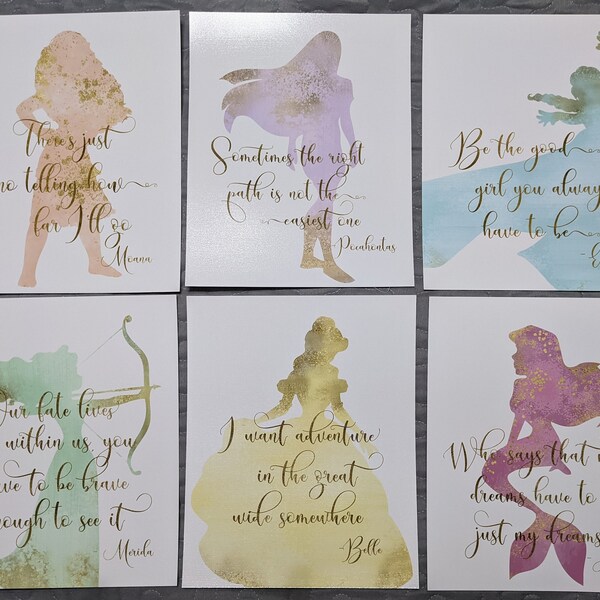 There's just
no telling how
far I'll go
Moana
Sometimes the right
path is not the
easiest one
Pocahontas
Be the good
girl you always
have to be
Our fate lives
within us you
have to be brave
enough to see it
Merida
I want adventure
in the great
wide somewhere
-Belle
Who says that my
dreams have to
just my dreams